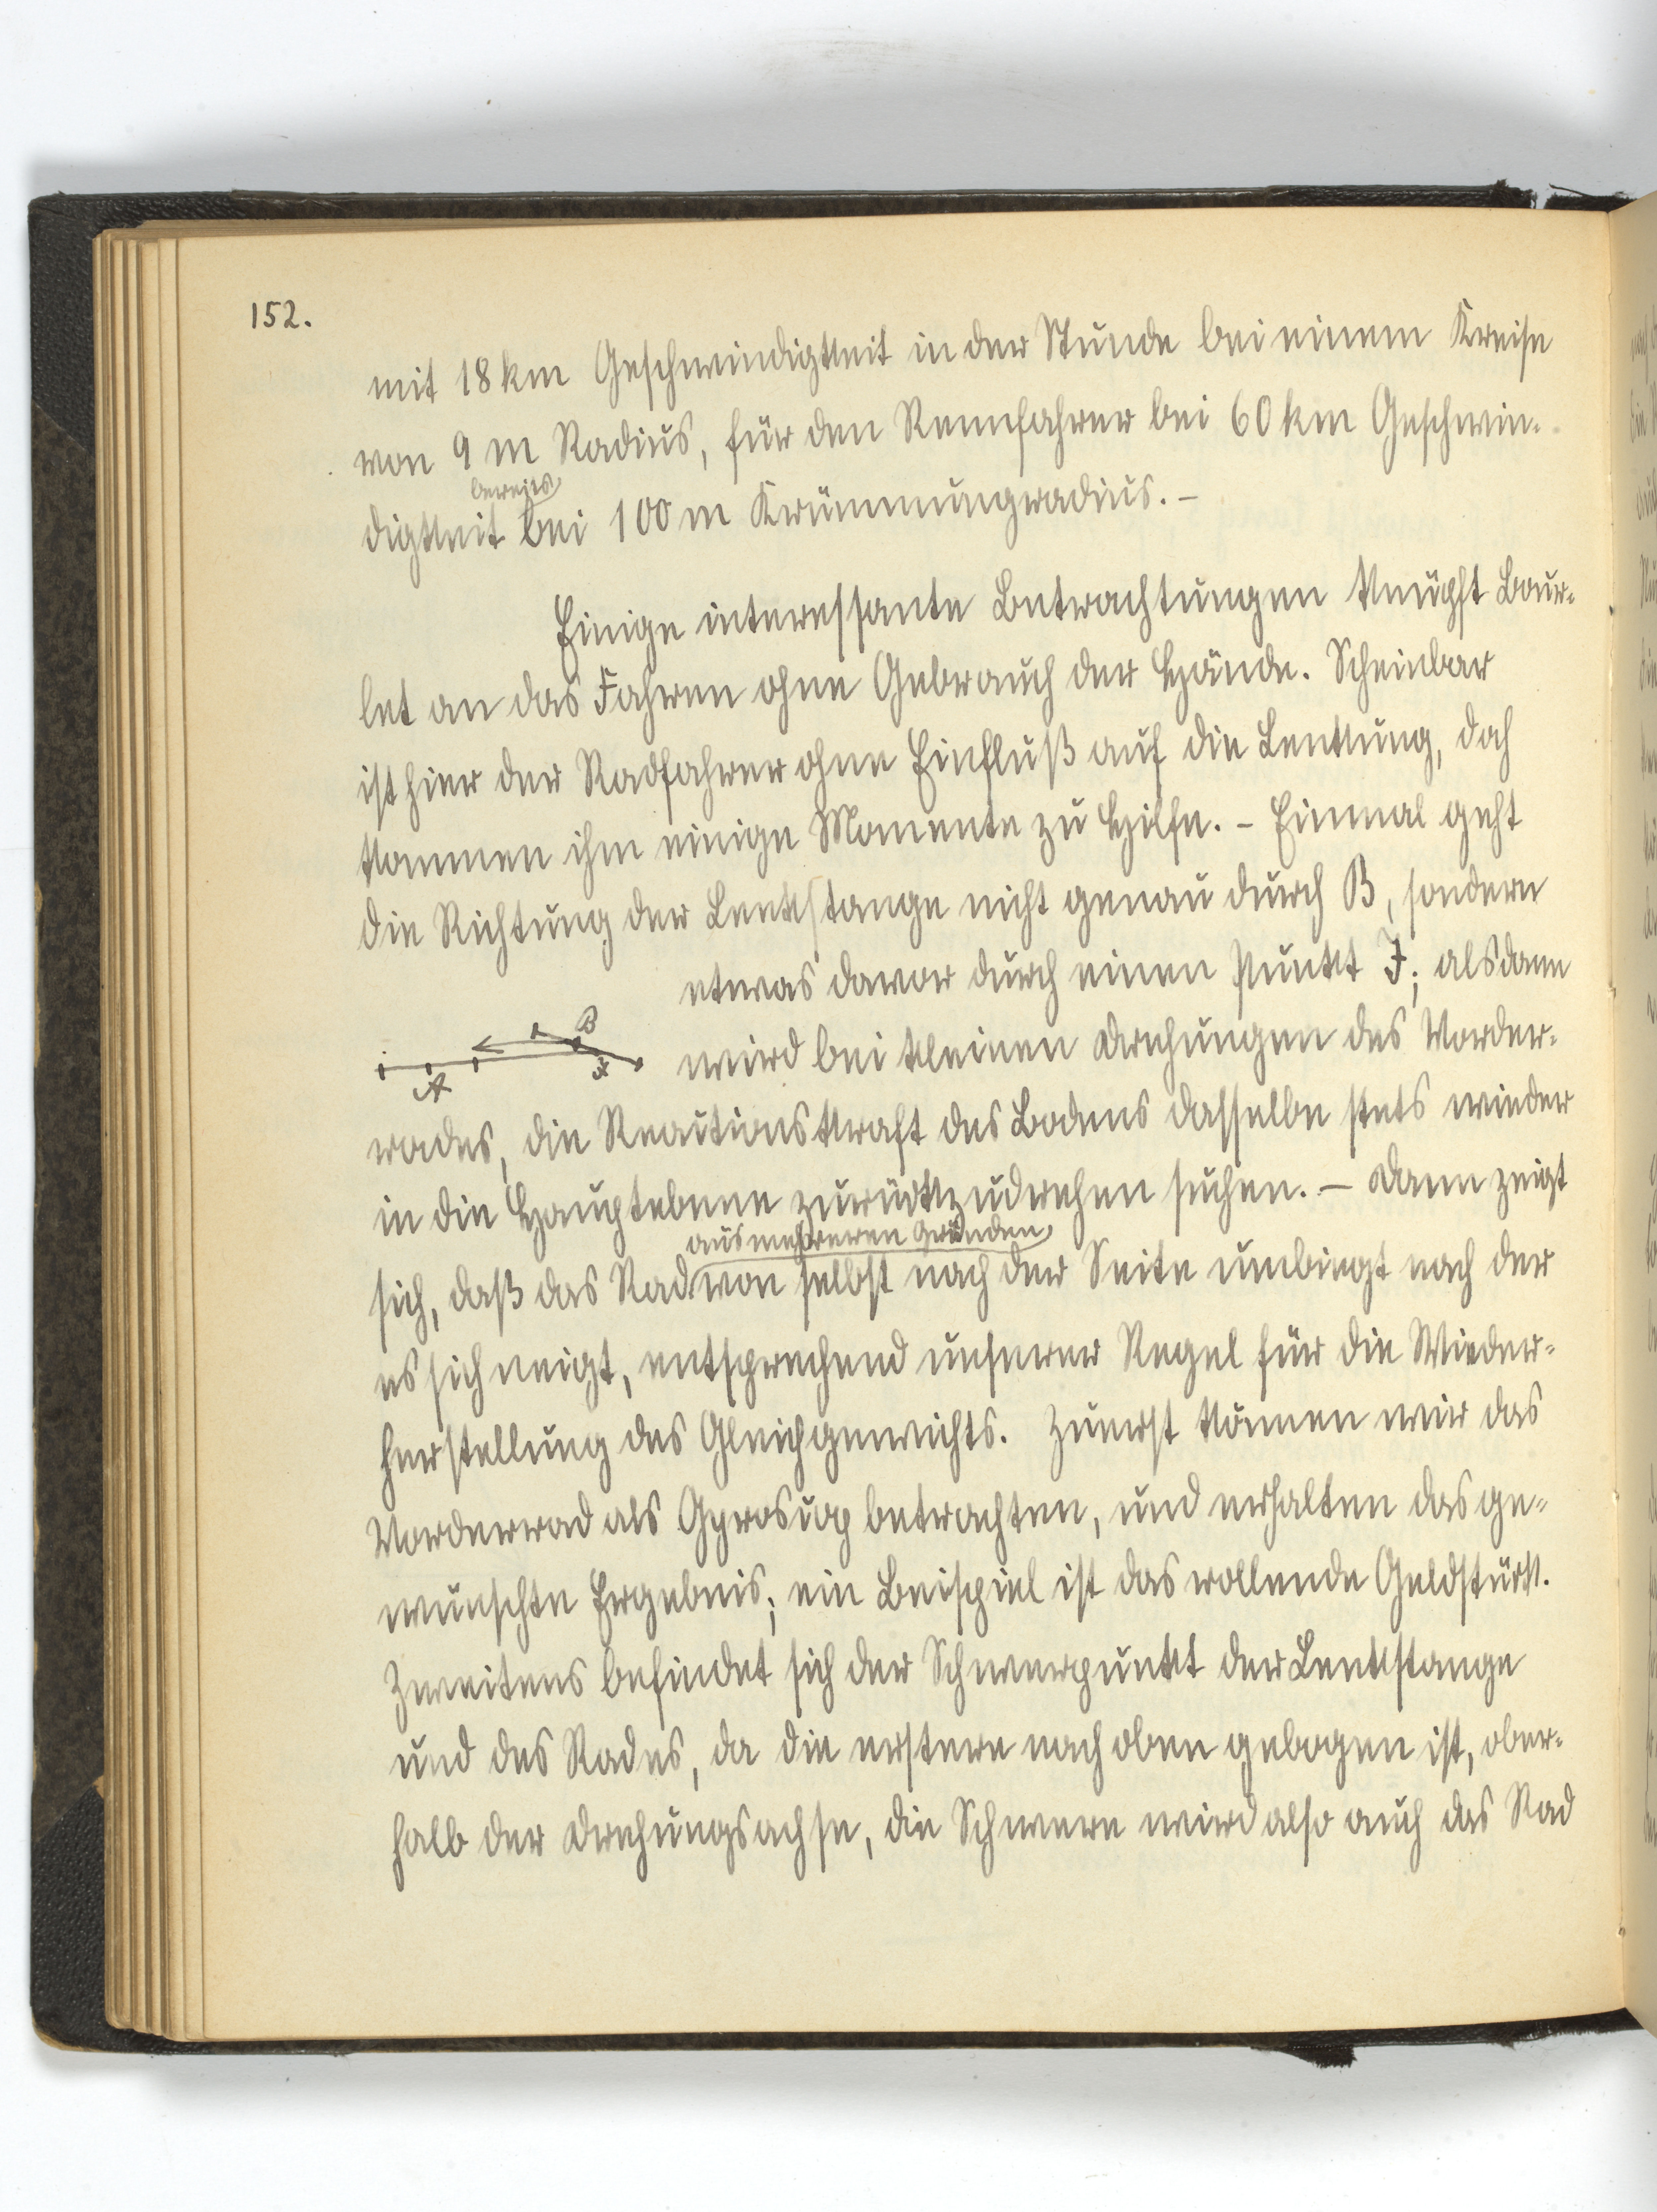 152.
mit 18 km Geschwindigkeit in der Stunde bei einem Kreise
von 9 m Radius, für den Rennfahrer bei 60 km Geschwin-
bereits
digkeit bei 100 m Krümmungradius. –
Einige interessante Betrachtungen knüpft Bour-
let an das Fahren ohne Gebrauch der Hände. Scheinbar
ist hier der Radfahrer ohne Einfluß auf die Lenkung, doch
kommen ihm einige Momente zu Hilfe. – Einmal geht
die Richtung der Lenkstange nicht genau durch B, sondern
etwas davor durch einen Punkt J; alsdann
B
J
A
wird bei kleinen Drehungen des Vorder-
rades, die Reactionskraft des Bodens dasselbe stets wieder
in die Hauptebene zurückzudrehen suchen. – Dann zeigt
aus mehreren Gründen
sich, daß das Rad von selbst nach der Seite umbiegt nach der
es sich neigt, entsprechend unserer Regel für die Wieder-
herstellung des Gleichgewichts. Zuerst können wir das
Vorderrad als Gyroscop betrachten, und erhalten das ge-
wünschte Ergebnis; ein Beispiel ist das rollende Geldstück.
Zweitens befindet sich der Schwerpunkt der Lenkstange
und des Rades, da die erstere nach oben gebogen ist, ober-
halb der Drehungsachse, die Schwere wird also auch das Rad